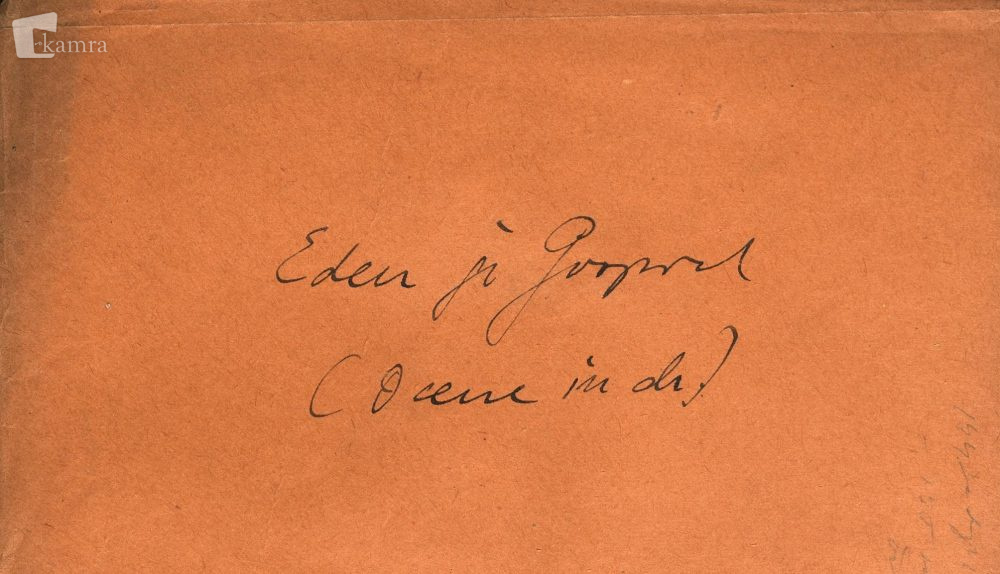 kamra
Eden je Gospod
(Ocene in dr.)